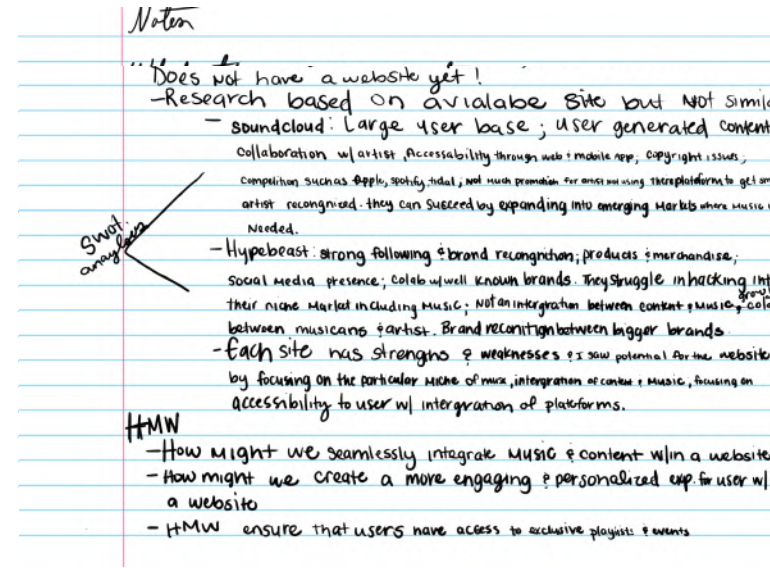 Notes
Does not have a website yet!
- Research based on avialabe site but not simila
- soundcloud: Large user base; user generated content
collaboration w/artist, Accessability through web & mobile app; copyright issues;
competition such as Apple, spotify, tidal; not much promotion for artist not using there plateform to get sm
artist recongnized. they can succeed by expanding into emerging markets where music i
needed.
Swot
anaylses
- Hypebeast: strong following & brand recongnition; products & merchandise;
social media presence; colab w/well known brands. They struggle in hacking int
their niche market including music; not an intergration between content & music, grow cola
between musicans & artist. Brand reconition between bigger brands.
- Each site has strengths & weaknesses & I saw potential for the website
by focusing on the particular niche of music, intergration of content & music, focusing on
accessibility to user w/ intergration of platforms.
HMW
- How might we seamlessly integrate music & content w/in a website
- How might we create a more engaging & personalized exp. for user w/
a website
- HMW ensure that users have access to exclusive playlists & events